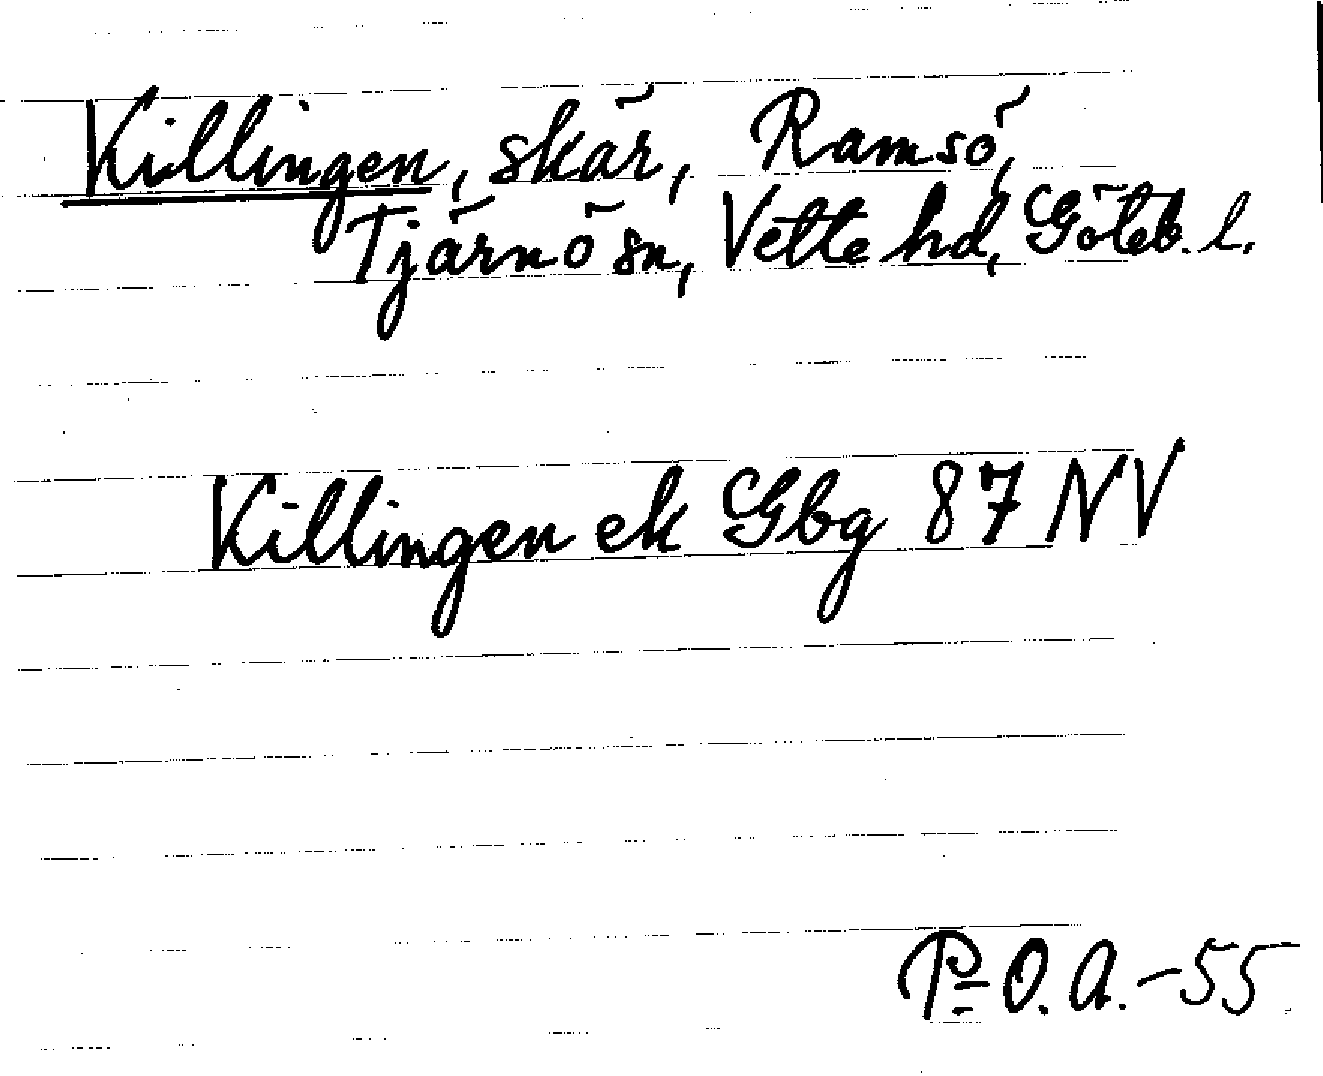 Killingen, skär, Ramsö,
Tjärnö sn, Vette hd, Göteb. l.
Killingen ek Gbg 87 NV
P-O. A. -55